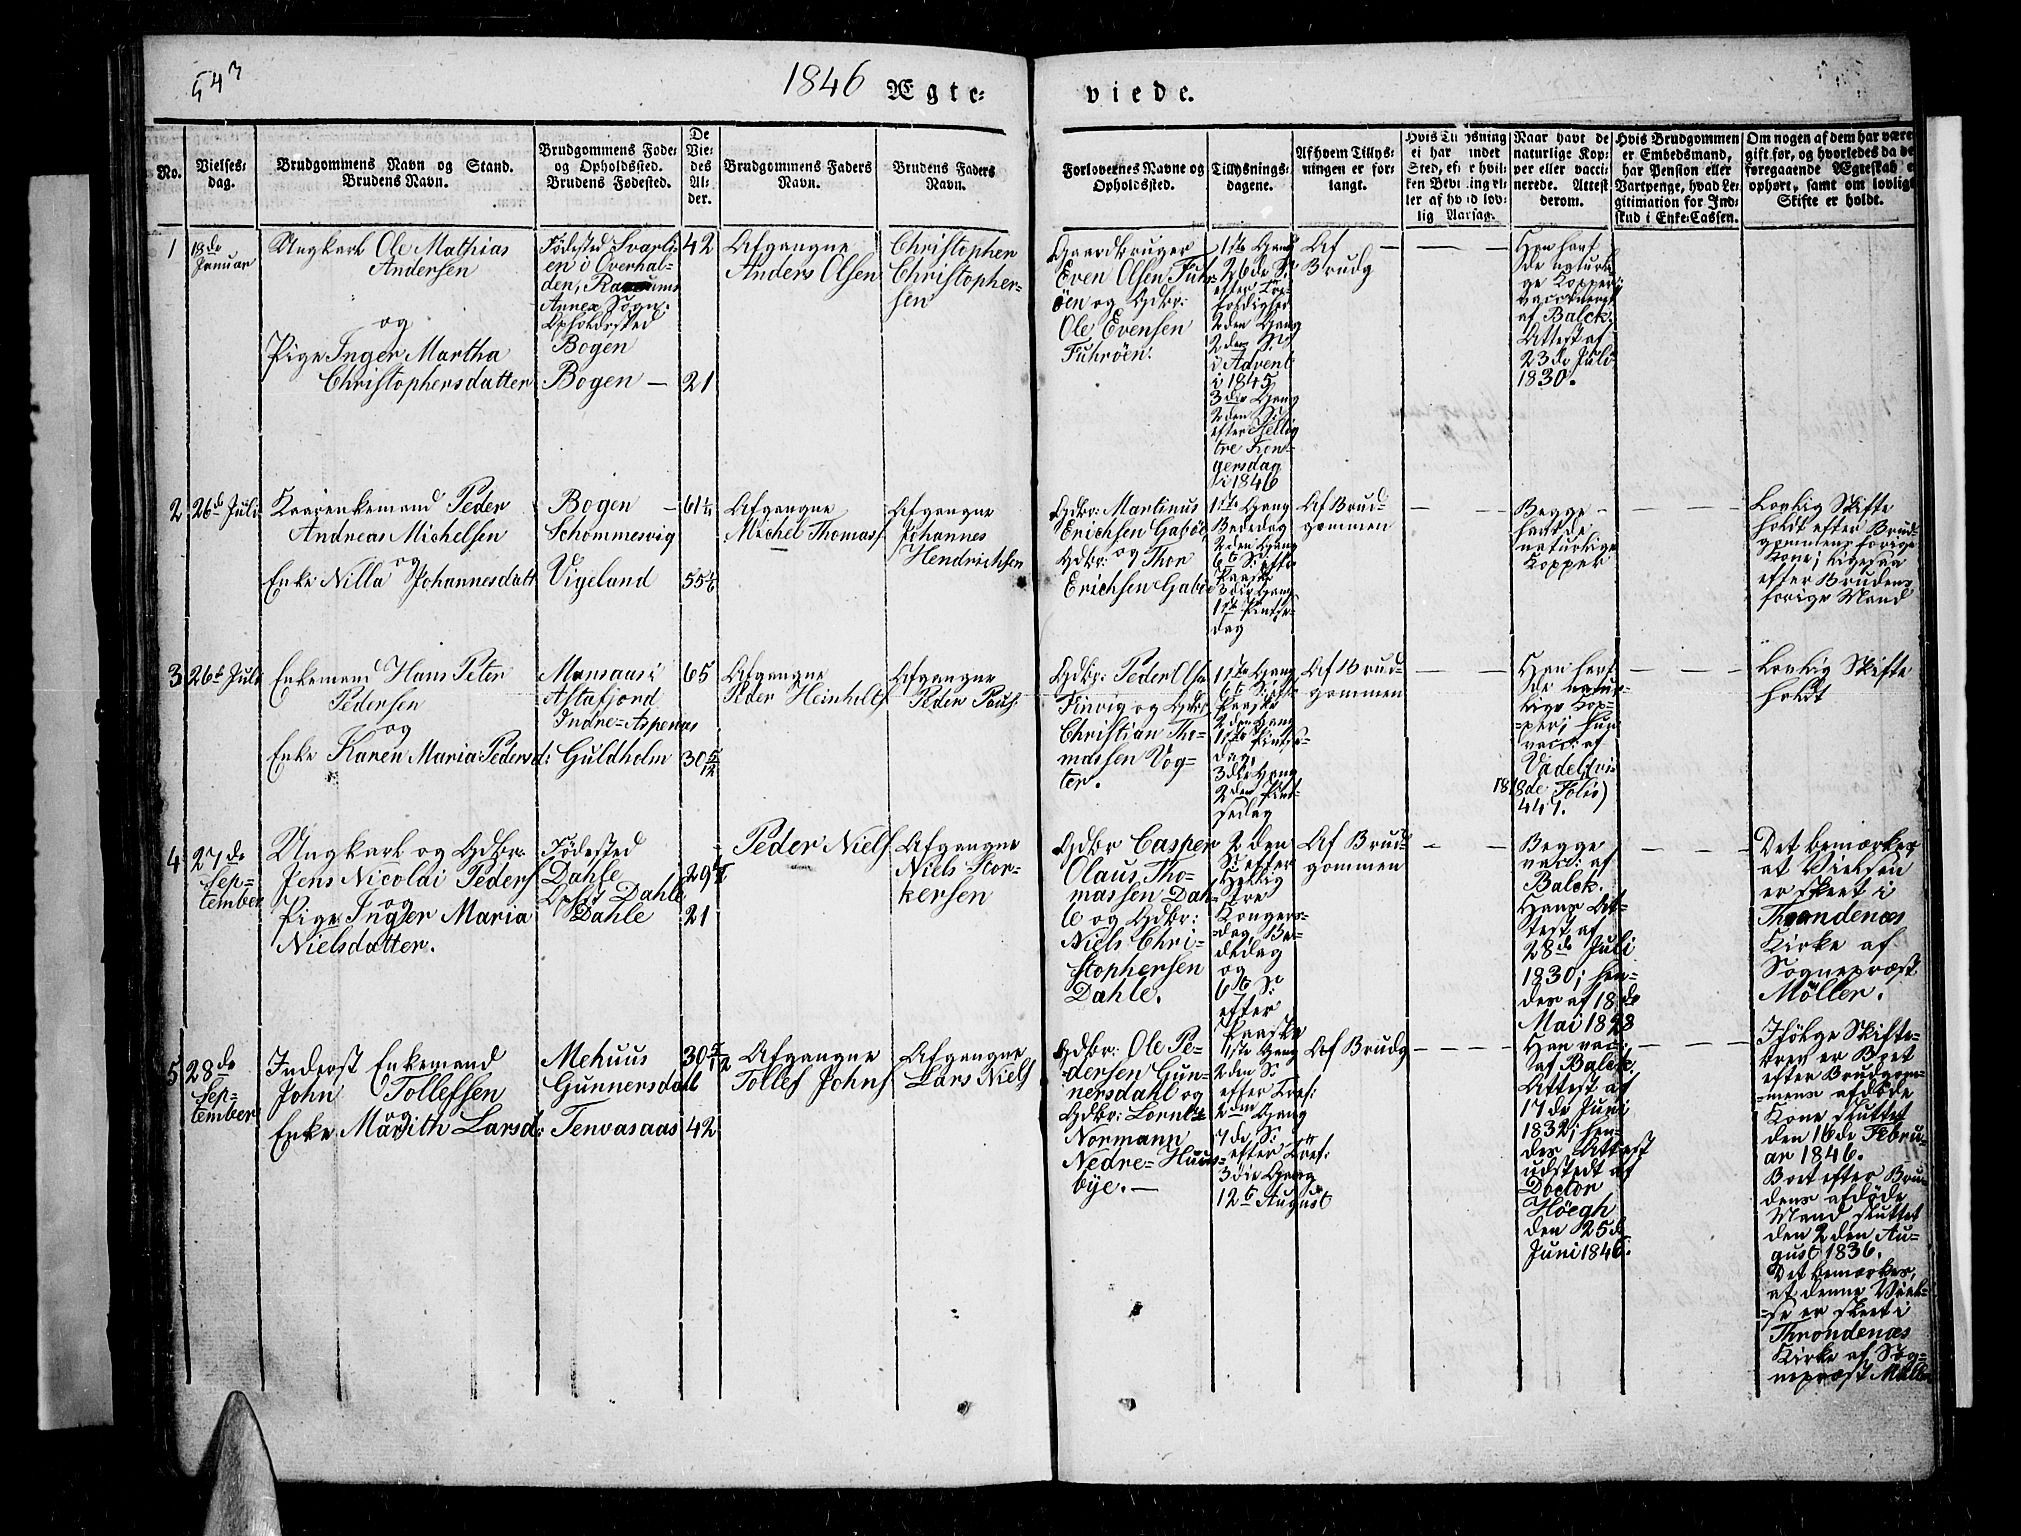 543
1846 Ægte-
viede.
No.
Vielses-
dag.
Brudgommens Navn og Stand.
Brudens Navn.
Brudgommens Føde-
og Opholdssted.
Brudens Fødested.
De
Vie-
des
Al-
der.
Brudgommens Faders
Navn.
Brudens Faders
Navn.
Forlovernes Navne og
Opholdssted.
Tillysnings-
dagene.
Af hvem Tillys-
ningen er for-
langt.
Hvis Tillysning
ei har fundet
Sted, efter hvil-
ken Bevilling el-
ler af hvad lov-
lig Aarsag.
Naar havt de
naturlige Kop-
per eller vacci-
nerede. Attest
derom.
Hvis Brudgommen
er Embedsmand,
har Pension eller
Vartpenge, hvad Le-
gitimation for Ind-
skud i Enke-Cassen.
Om nogen af dem har været
gift før, og hvorledes da det
foregaaende Ægteskab er
ophørt, samt om lovligt
Skifte er holdt.
1
18de
Januar
Ungkarl Ole Mathias
Andersen
og
Pige Inger Martha
Christophersdatter
Fødested Svarli-
en i Overhal-
den,
Annex Sogn.
Opholdssted
Bogen
Bogen —
42
21
Afgangne
Anders Olsen
Christopher
Christopher-
sen
Gaardbruger
Even Olsen Fuhr-
öen og Gdbr:
Ole Evensen
Fuhröen.
1ste Gang
26de S:
efter Tre-
foldighed
2den Gang
2den S:
i Advent
i 1845
3die Gang
2den S:
efter Hellig
tre Kon-
gersdag
i 1846
Af
Brudg
— — —
Han havt
de naturli-
ge Kopper;
vaccineret
af Balck.
Attest af
23de Juli
1830.
— —
2
26de Juli
Kaarenkemand Peder
Andreas Michelsen
og
Enke Nilla Johannesdatt
Bogen —
Schommesvig
Vigeland
61¼
55½
Afgangne
Michel Thomass
Afgangne
Johannes
Hendrichsen
Gdbr: Martinus
Erichsen Gaböe
og
Gdbr: Thor
Erichsen Gaböe
1ste Gang
Bededag
2den Gang
6te S: efter
Paaske
3die Gang
1ste Pintse-
dag
Af Brud-
gommen
— —
Begge
havt de
naturlige
Kopper
— —
Lovlig Skifte
holdt efter Brud-
gommens forige
Kone; ligesaa
efter Brudens
forige Mand
3
26de Juli
Enkemand Hans Peter
Pedersen
og
Enke Karen Maria Pedersd:
Monsaas i
Astafjord
Indre-Aspenæs
Guldholm
65
30 5/12
Afgangne
Peder Heinhilts
Afgangne
Peder Pouls:
Gdbr: Peder Ols
Finvig og Gdbr
Christian Tho-
massen Vog-
ter.
1ste Gang
6te S: eft
Paaske
2den Gang
1ste Pintse-
dag,
3die Gang
2den Pint-
sedag
Af Brud-
gommen
— —
Han havt
de natur-
lige Kop-
per; hun
vacc: af
Vadel (vi-
1818de Folio)
441.
— —
Lovlig Skifte
holdt
4
27de
Sep-
tember
Ungkarl og Gdbr.
Jens Nicolai Peders
og
Pige Inger Maria
Nielsdatter.
Fødested
Dahle
Opst: Dahle
Dahle
29½
21
Peder Niels
Afgangne
Niels Tor-
kersen
Gdbr Casper
Olaus Tho-
massen Dah-
le og Gdbr:
Niels Chri-
stophersen
Dahle.
2den
S: efter
Hellig
tre
Konger-
dag, Be-
dedag
og
6te S:
efter
Paaske
Af Brud-
gommen
— —
Begge
vacc: af
Balck.
Hans At-
test af
28de Juli
1830; hen-
des af 18de
Mai 1828
— —
Det bemærkes
at Vielsen
er skeet i
Throndenæs
Kirke af
Sognepræst
Möller.
5
28de
Sep-
tember
Inderst Enkemand
John Tollefsen
og
Enke Marith Larsd:
Mehuus
Gunnersdahl
Tenvasaas
30 5/12
42
Afgangne
Tollef Johns
Afgangne
Lars Niels
Gdbr: Ole Pe-
dersen Gun-
nersdahl og
Gdbr:
Normann
Nedre-Huus-
bye. —
1ste Gang
2den S:
efter Tref:
2den Gang
7de S:
efter Tref:
3die Gang
12te August
Af Brudg
— —
Han vacc:
af Balck.
Attest af
17de Juni
1832; hen-
des Attest
udstedt af
Doctor
Höegh
den 25de
Juni 1846.
— —
Ifölge Skifte-
brev er Boet
efter Brudgom-
mens afdöde
Kone sluttet
den 16de Febru-
ar 1846.
Boet efter Bru-
dens afdöde
Mand sluttet
den 2den Au-
gust 1836.
Det bemærkes,
at denne Viel-
se er skeet i
Throndenæs
Kirke af Sog-
nepræst Möller